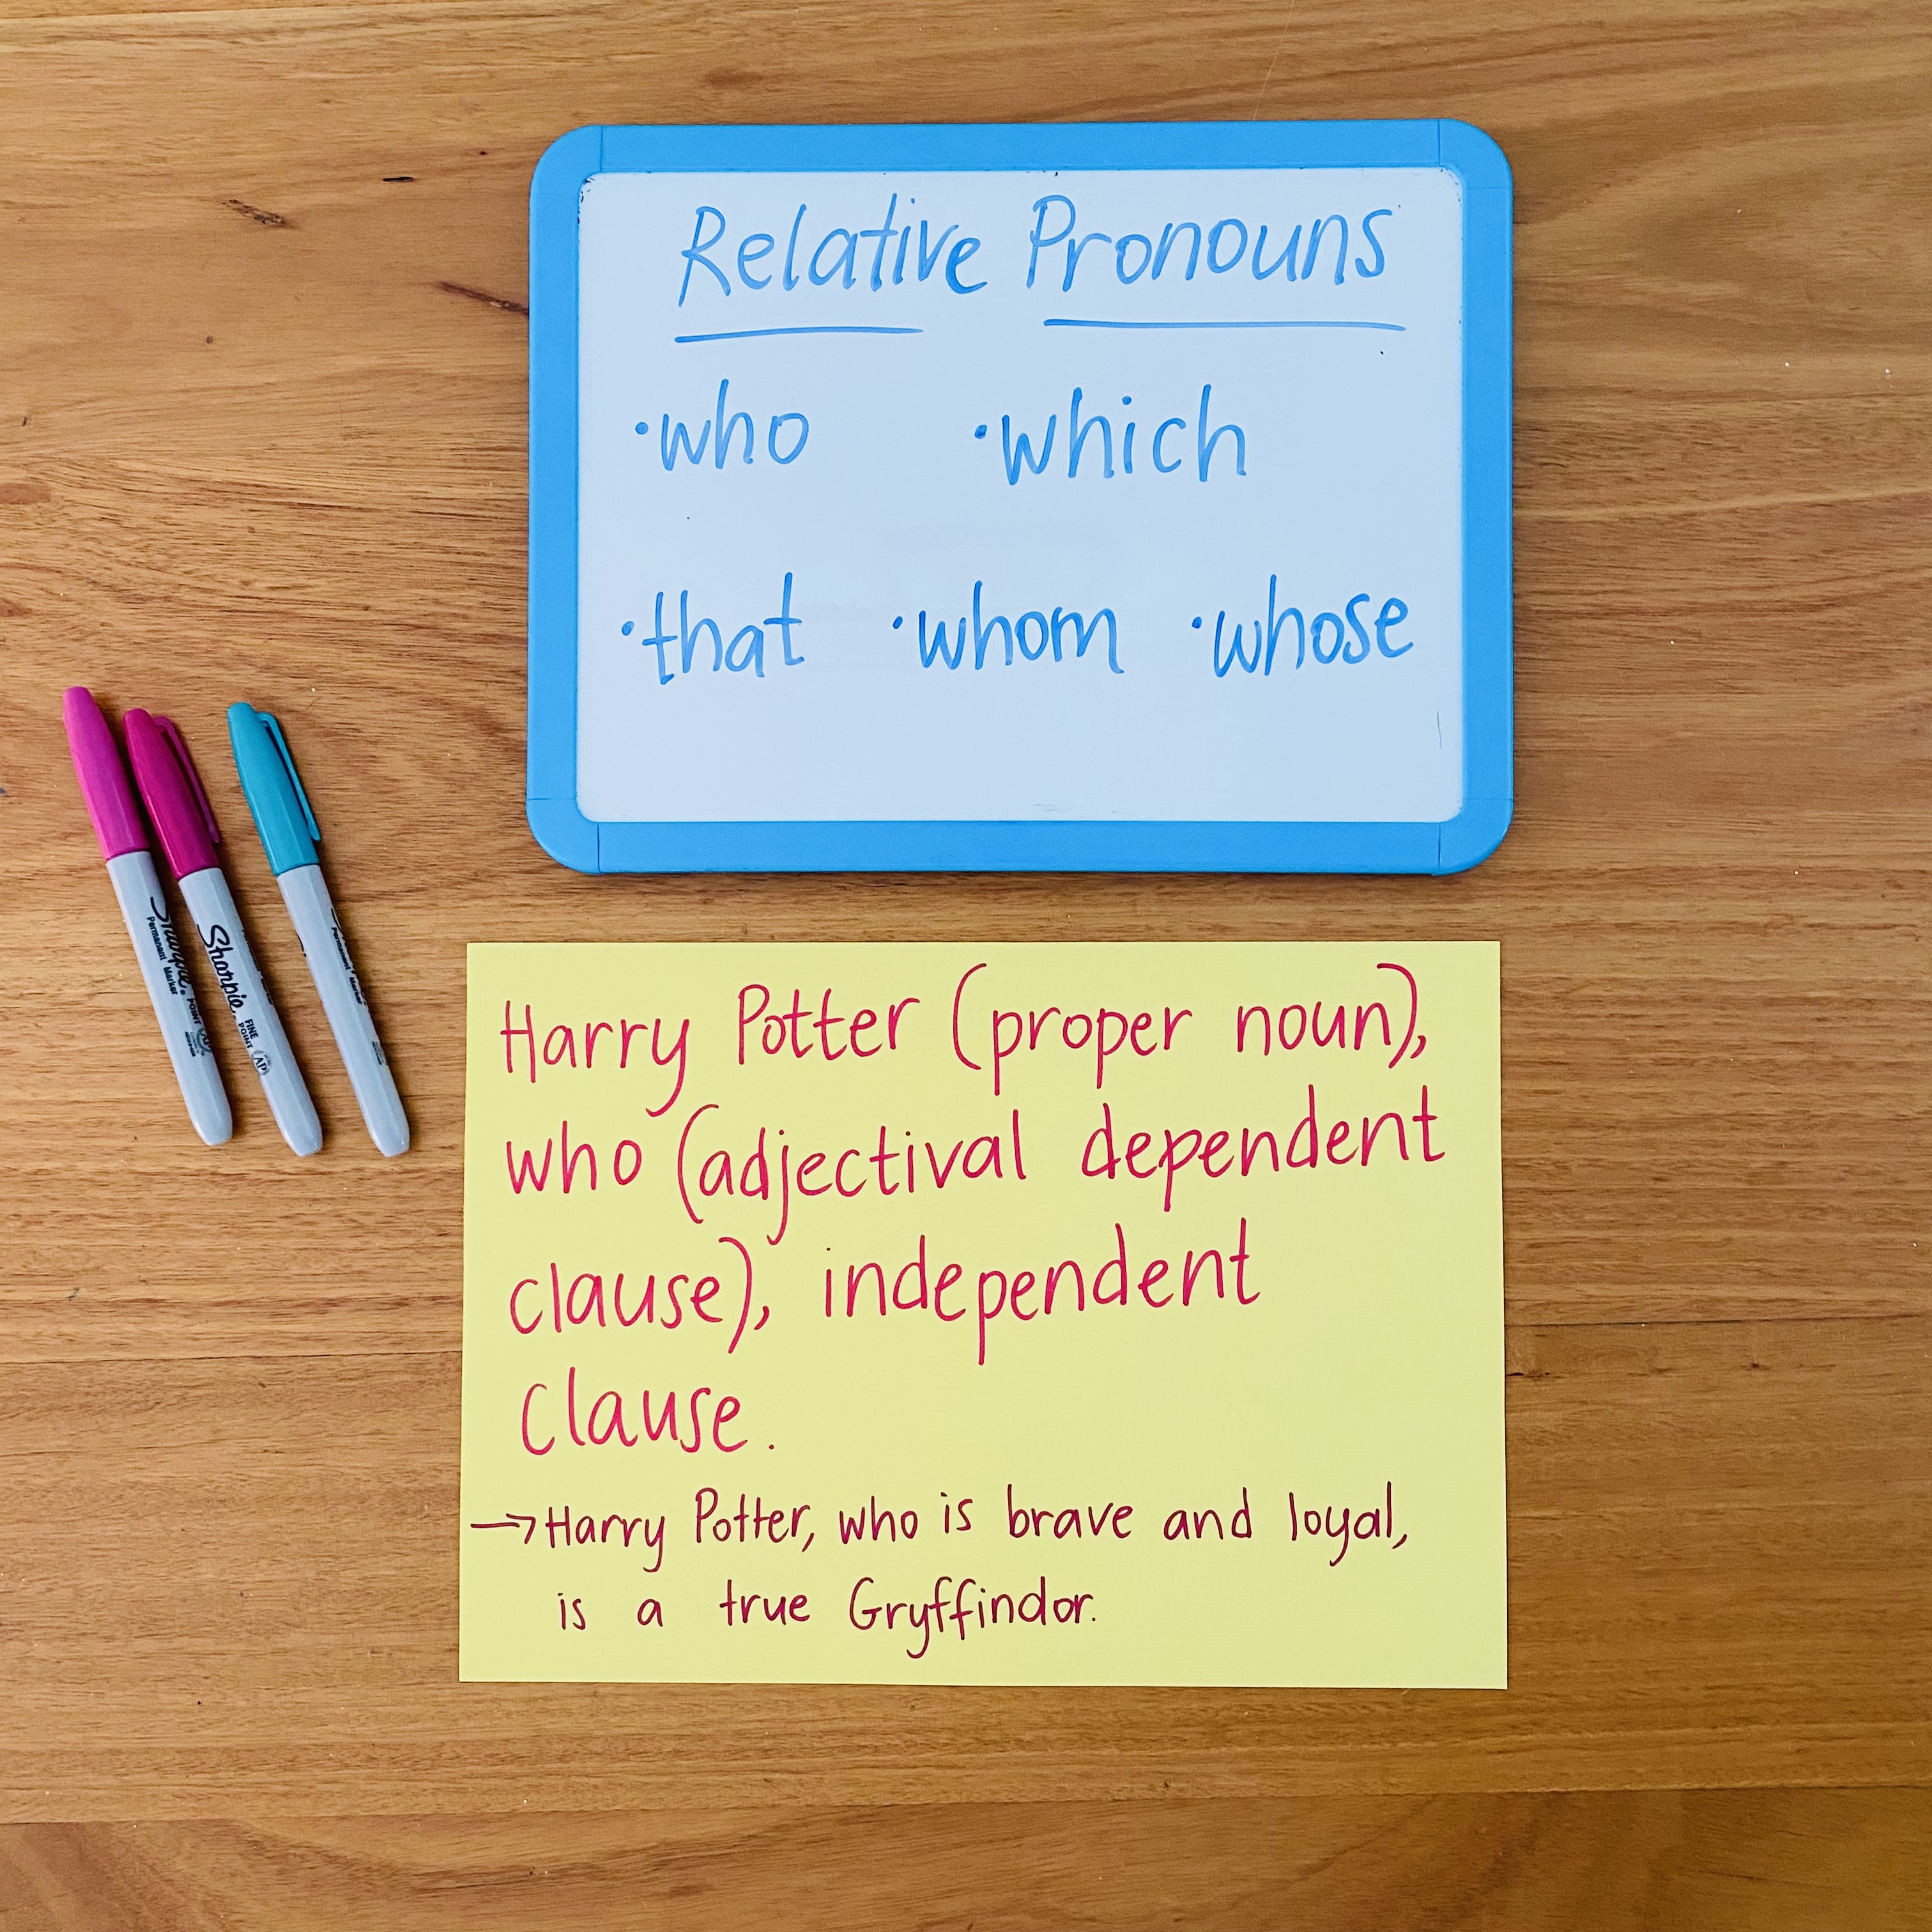 Relative Pronouns
·who ·which
·that ·whom ·whose
Sharpie
Permanent Marker
POINT
Sharpie
FINE
POINT
AP
Permanent Marker
Harry Potter (proper noun),
who (adjectival dependent
clause), independent
clause.
→Harry Potter, who is brave and loyal,
is a true Gryffindor.